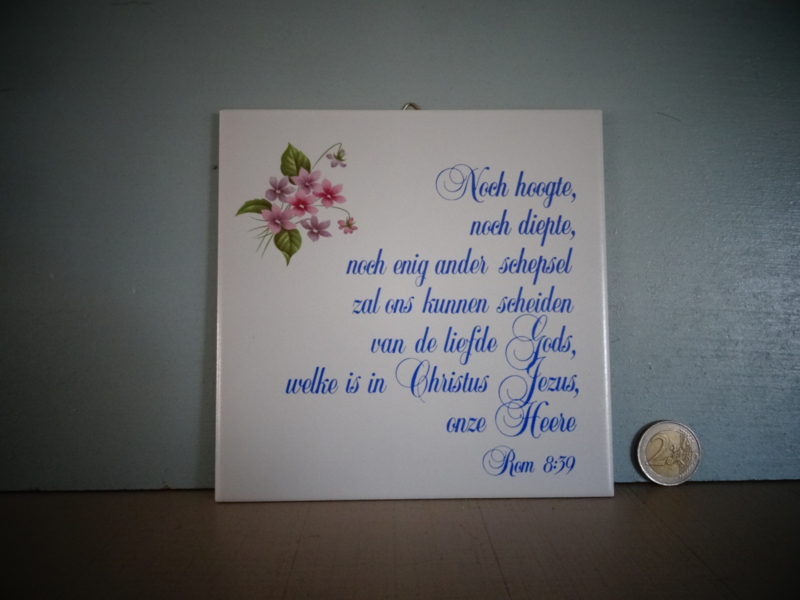 Noch hoogte,
noch diepte,
noch enig ander schepsel
zal ons kunnen scheiden
van de liefde Gods,
welke is in Christus Jezus,
onze Heere
Rom 8:39
2